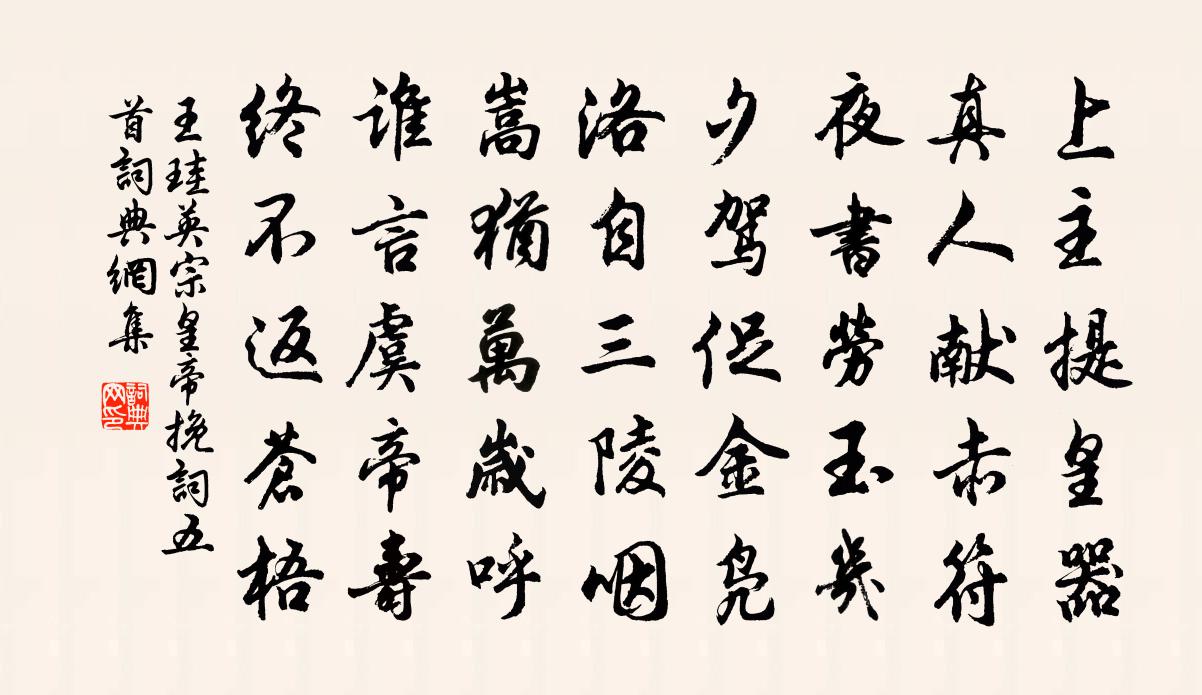 上主提皇器
真人献赤符
夜書勞玉几
夕駕促金凫
洛自三陵咽
嵩猶萬歲呼
誰言虞帝壽
終不返蒼梧
王珪英宗皇帝挽詞五
首詞典網集
詞典
网印